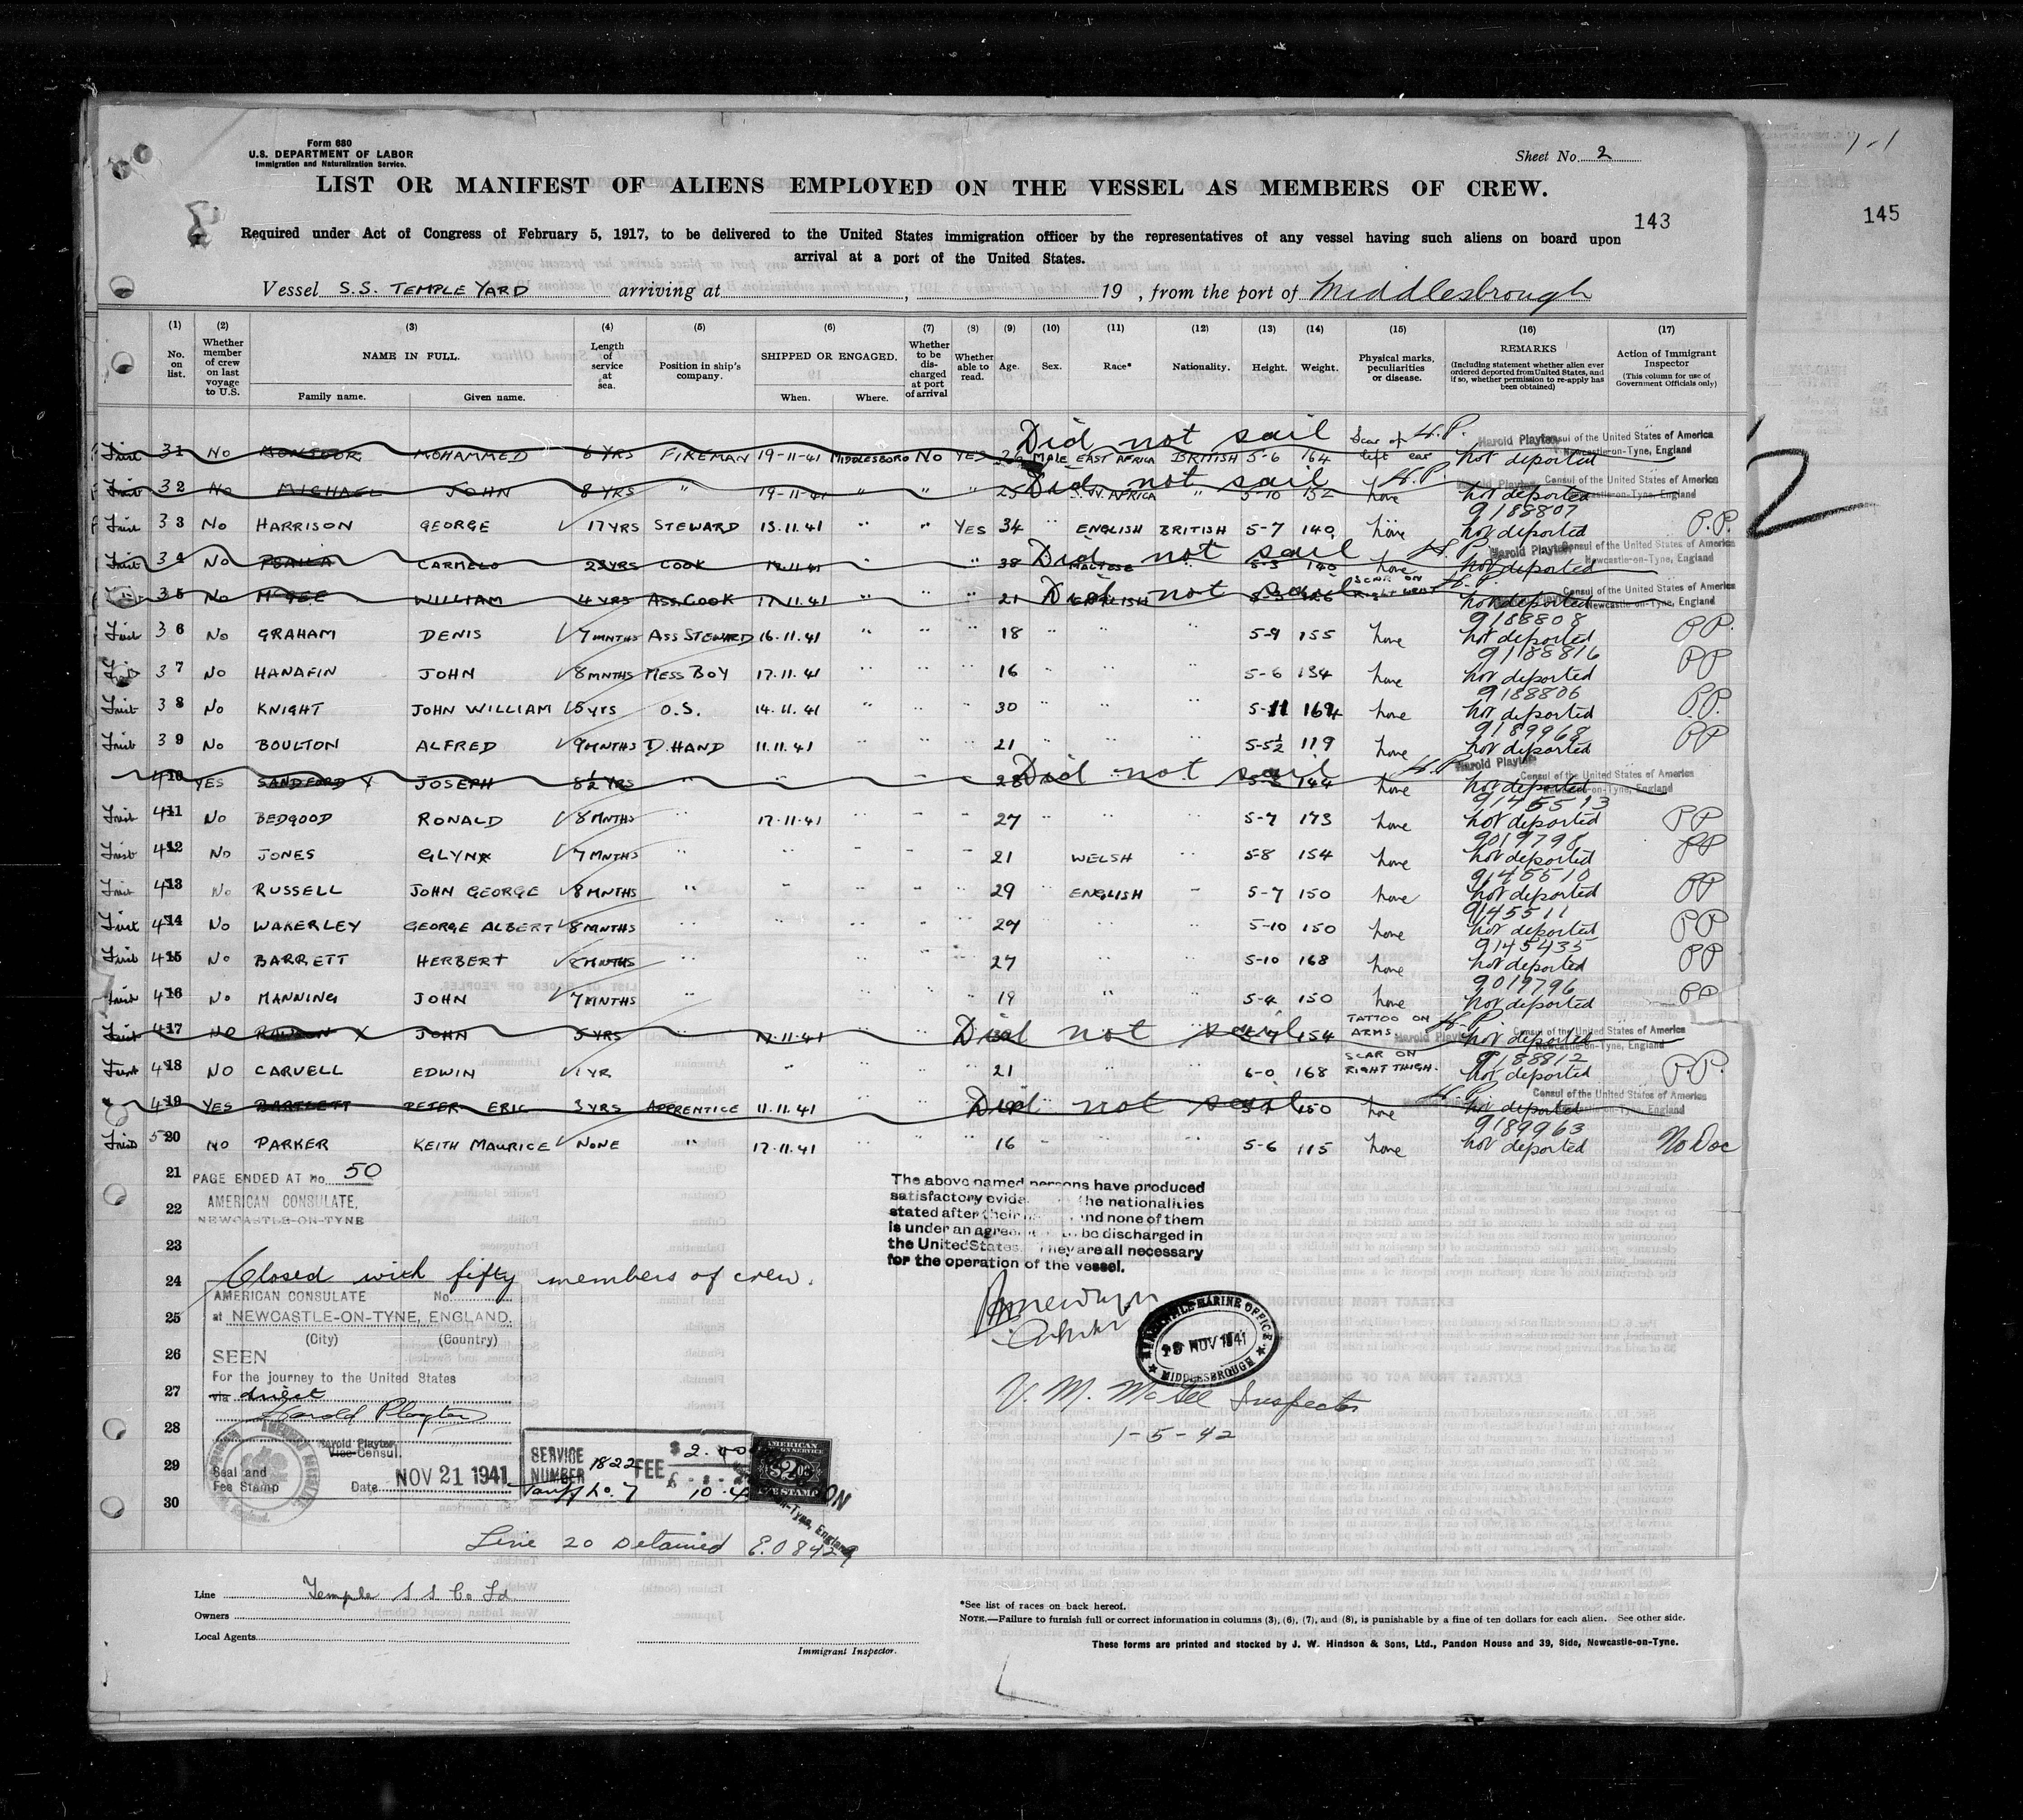 1-1
Form 680
U.S. DEPARTMENT OF LABOR
Immigration and Naturalization Service.
Sheet No. 2
LIST OR MANIFEST OF ALIENS EMPLOYED ON THE VESSEL AS MEMBERS OF CREW.
143
145
Required under Act of Congress of February 5, 1917, to be delivered to the United States immigration officer by the representatives of any vessel having such aliens on board upon
arrival at a port of the United States.
Vessel S.S. TEMPLE YARD arriving at , 19 , from the port of Middlesbrough
(1) (2) (3) (4) (5) (6) (7) (8) (9) (10) (11) (12) (13) (14) (15) (16) (17)
No. on list. Whether member of crew on last voyage to U.S. NAME IN FULL. Family name. Given name. Length of service at sea. Position in ship's company. SHIPPED OR ENGAGED. When. Where. Whether to be discharged at port of arrival Whether able to read. Age. Sex. Race* Nationality. Height. Weight. Physical marks, peculiarities or disease. REMARKS (Including statement whether alien ever ordered deported from United States, and if so, whether permission to re-apply has been obtained) Action of Immigrant Inspector (This column for use of Government Officials only)
Did not sail H.P. Harold Playter Consul of the United States of America
31 No MOHAMMED 6 YRS FIREMAN 19-11-41 MIDDLESBORO NO YES MALE EAST AFRICA BRITISH 5-6 164 Scar of left ear not deported Newcastle-on-Tyne, England
Did not sail H.P. Consul of the United States of America
32 No MICHAEL JOHN 8 YRS " 19-11-41 " " " 25 W. AFRICA " 5-10 152 none not deported Newcastle-on-Tyne, England
9188807
33 No HARRISON GEORGE 17 YRS STEWARD 13.11.41 " " YES 34 " ENGLISH BRITISH 5-7 140 none not deported P.P.
2
Did not sail H.P. Harold Playter Consul of the United States of America
34 No PSAILA CARMELO 23 YRS COOK 17.11.41 " " 38 MALTESE " 5-3 140 none not deported Newcastle-on-Tyne, England
Did not sail H.P. Consul of the United States of America
35 No McGEE WILLIAM 4 YRS ASS.COOK 17.11.41 " " " 21 ENGLISH not deported Newcastle-on-Tyne, England
9188808
36 No GRAHAM DENIS 7 MNTHS ASS STEWARD 16.11.41 " " " 18 " " " 5-9 155 none not deported PP.
9188816
37 No HANAFIN JOHN 8 MNTHS MESS BOY 17.11.41 " " " 16 " " " 5-6 134 none not deported PP
9188806
38 No KNIGHT JOHN WILLIAM 5 YRS O.S. 14.11.41 " " " 30 " " " 5-11 164 none not deported P.P.
9189968
39 No BOULTON ALFRED 9 MNTHS D. HAND 11.11.41 " " " 21 " " " 5-5½ 119 none not deported PP
Did not sail H.P. Harold Playter Consul of the United States of America
40 YES SANDFORD X JOSEPH 8½ YRS " 28 144 none not deported Newcastle-on-Tyne, England
9145513
41 No BEDGOOD RONALD 8 MNTHS " 17-11-41 " " " 27 " " " 5-7 173 none not deported PP
9019798
42 No JONES GLYN 7 MNTHS " " " " " 21 " WELSH " 5-8 154 none not deported PP
9145510
43 No RUSSELL JOHN GEORGE 8 MNTHS " " " " " 29 " ENGLISH " 5-7 150 none not deported PP
9145511
44 No WAKERLEY GEORGE ALBERT 8 MNTHS " " " " " 29 " " " 5-10 150 none not deported PP
9145435
45 No BARRETT HERBERT 8 MNTHS " " " " " 27 " " " 5-10 168 none not deported PP
9019796
46 No MANNING JOHN 7 MNTHS " " " " " 19 " " " 5-4 150 none not deported PP
Did not sail H.P. Harold Playter Consul of the United States of America
47 No X JOHN 5 YRS " 17.11.41 " " " 154 TATTOO ON ARMS not deported Newcastle-on-Tyne, England
9188812
48 NO CARVELL EDWIN 1 YR " " " 21 " " " 6-0 168 SCAR ON RIGHT THIGH. not deported P.P.
Did not sail H.P. Consul of the United States of America
49 YES BARTLETT PETER ERIC 3 YRS APPRENTICE 11.11.41 150 none not deported Newcastle-on-Tyne, England
9189963
50 No PARKER KEITH MAURICE NONE " 17.11.41 " " " 16 " " " 5-6 115 none not deported No Doc
21 PAGE ENDED AT No 50
AMERICAN CONSULATE,
22 NEWCASTLE-ON-TYNE
The above named persons have produced
satisfactory evide. the nationalities
stated after their and none of them
is under an agree to be discharged in
the United States. They are all necessary
for the operation of the vessel.
23
24 Closed with fifty members of crew.
AMERICAN CONSULATE No.
25 at NEWCASTLE-ON-TYNE, ENGLAND.
(City) (Country)
26 SEEN
For the journey to the United States
27 via direct
Harold Playter
28
Harold Playter
Vice Consul.
29 Seal and
Fee Stamp Date NOV 21 1941
30
MERCANTILE MARINE OFFICE
19 NOV 1941
MIDDLESBROUGH
V. M. McGee Inspector
1-5-42
SERVICE NUMBER 1822 FEE $ 2.00
Tariff No. 7 10.4
AMERICAN
FEE STAMP
Line 20 Detained E.O 8429
Line Temple S.S. Co. Ld
Owners
Local Agents
Immigrant Inspector.
*See list of races on back hereof.
NOTE.—Failure to furnish full or correct information in columns (3), (6), (7), and (8), is punishable by a fine of ten dollars for each alien. See other side.
These forms are printed and stocked by J. W. Hindson & Sons, Ltd., Pandon House and 39, Side, Newcastle-on-Tyne.